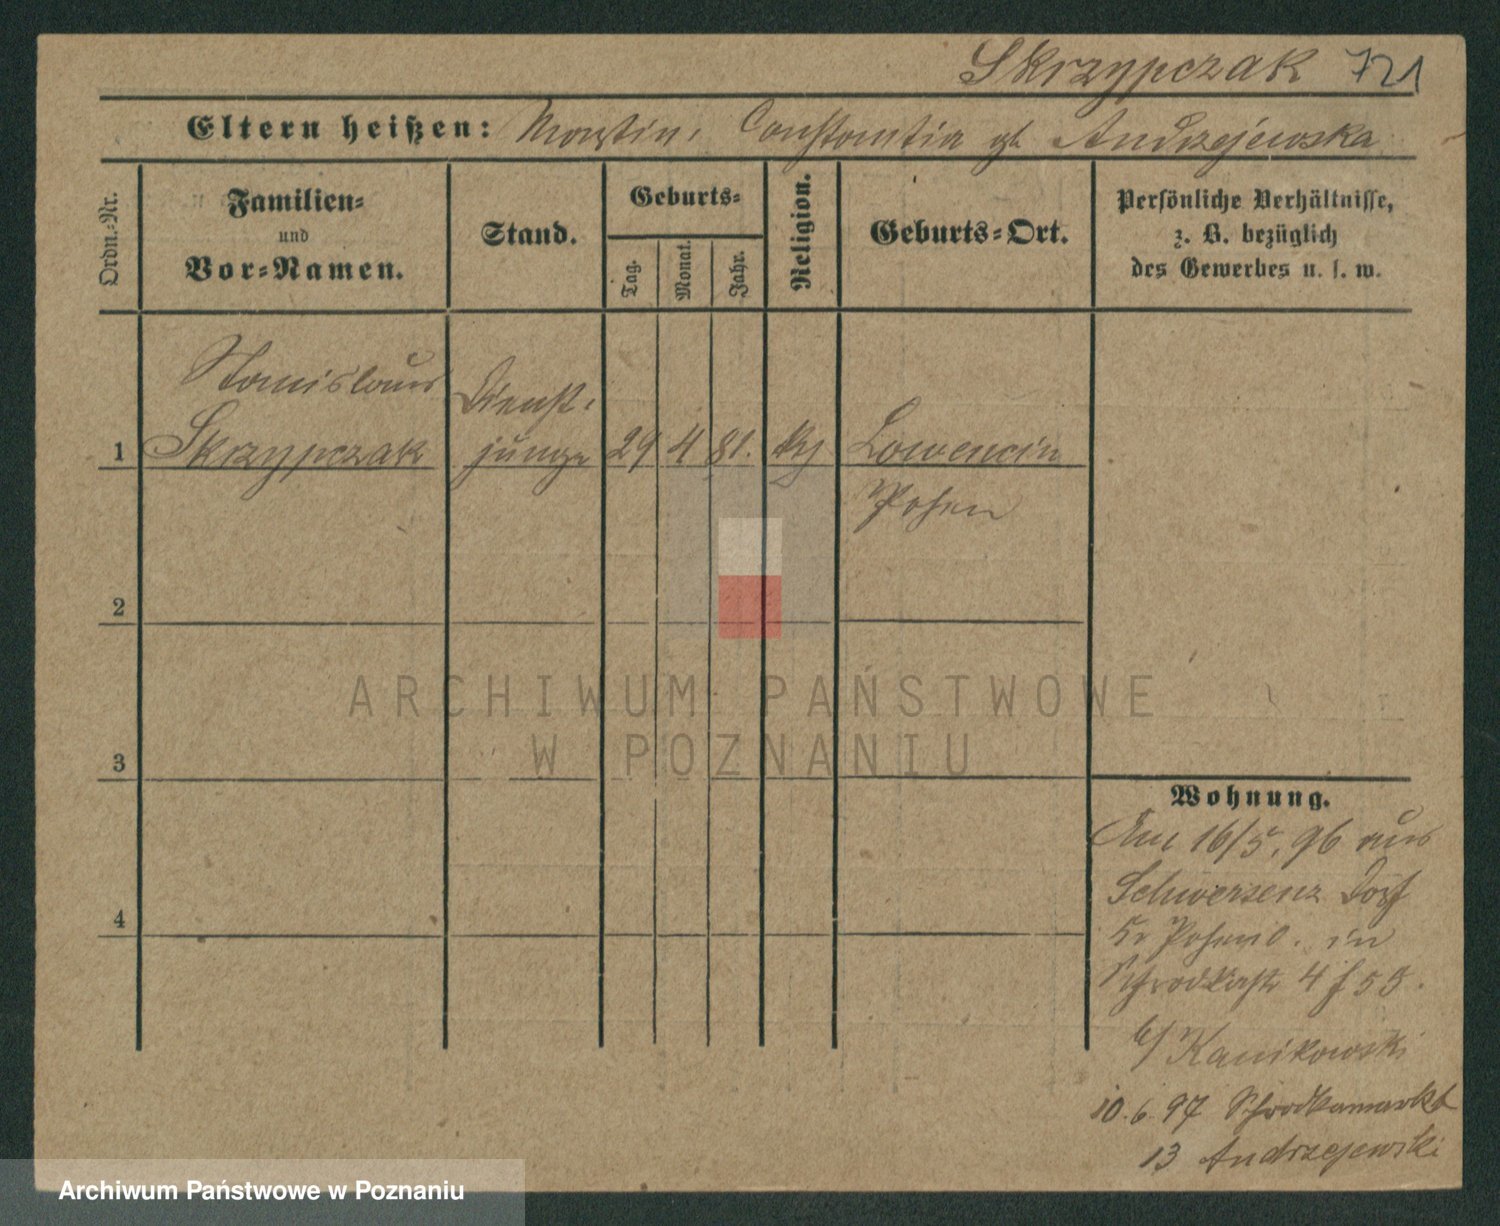 Skrzypczak 721
Eltern heißen: Martin, Constantia gb. Andrzejewska
Ordn.-Nr.
Familien-
und
Vor-Namen.
Stand.
Geburts-
Tag.
Monat.
Jahr.
Religion.
Geburts-Ort.
Persönliche Verhältnisse,
z. B. bezüglich
des Gewerbes u. s. w.
Stanislaus
Dienst-
1 Skrzypczak junge 29 4 81. Lowencin
Posen
2
ARCHIWUM PAŃSTWOWE
W POZNANIU
3
Wohnung.
Am 16/5. 96 aus
Schwersenz Dorf
Kr Posen O. in
4
4 f 55.
b/ Kanikowski
10. 6. 97 Schrodkamarkt
13 Andrzejewski
Archiwum Państwowe w Poznaniu